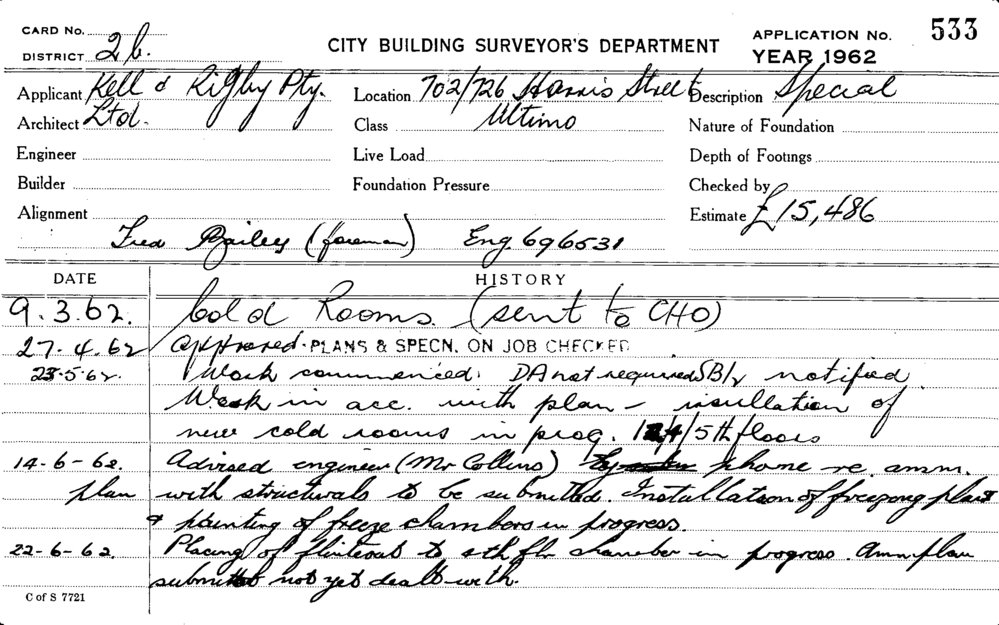 CARD No.
DISTRICT 2b.
CITY BUILDING SURVEYOR'S DEPARTMENT
APPLICATION No. 533
YEAR 1962
Applicant Kell & Rigby Pty.
Location 702/726 Harris Street
Description Special
Architect Ltd.
Class Ultimo
Nature of Foundation
Engineer
Live Load
Depth of Footings
Builder
Foundation Pressure
Checked by
Alignment
Estimate £15,486
Fred Bailey (foreman) Eng 696531
DATE HISTORY
9.3.62. Cold Rooms (sent to CHO)
27.4.62 Approved. PLANS & SPECN. ON JOB CHECKED
23.5.62. Work commenced. DA not required notified.
Work in acc. with plan - insullation of
new cold rooms in prog. /5th floors
14-6-62. Advised engineer (Mr Collins) phone re. amm.
plan with structurals to be submitted. Installation of freezong plant
& painting of freeze chambers in progress.
22-6-62. Placing of to flr chamber in progress. Amm plan
submitted not yet dealt with.
C of S 7721